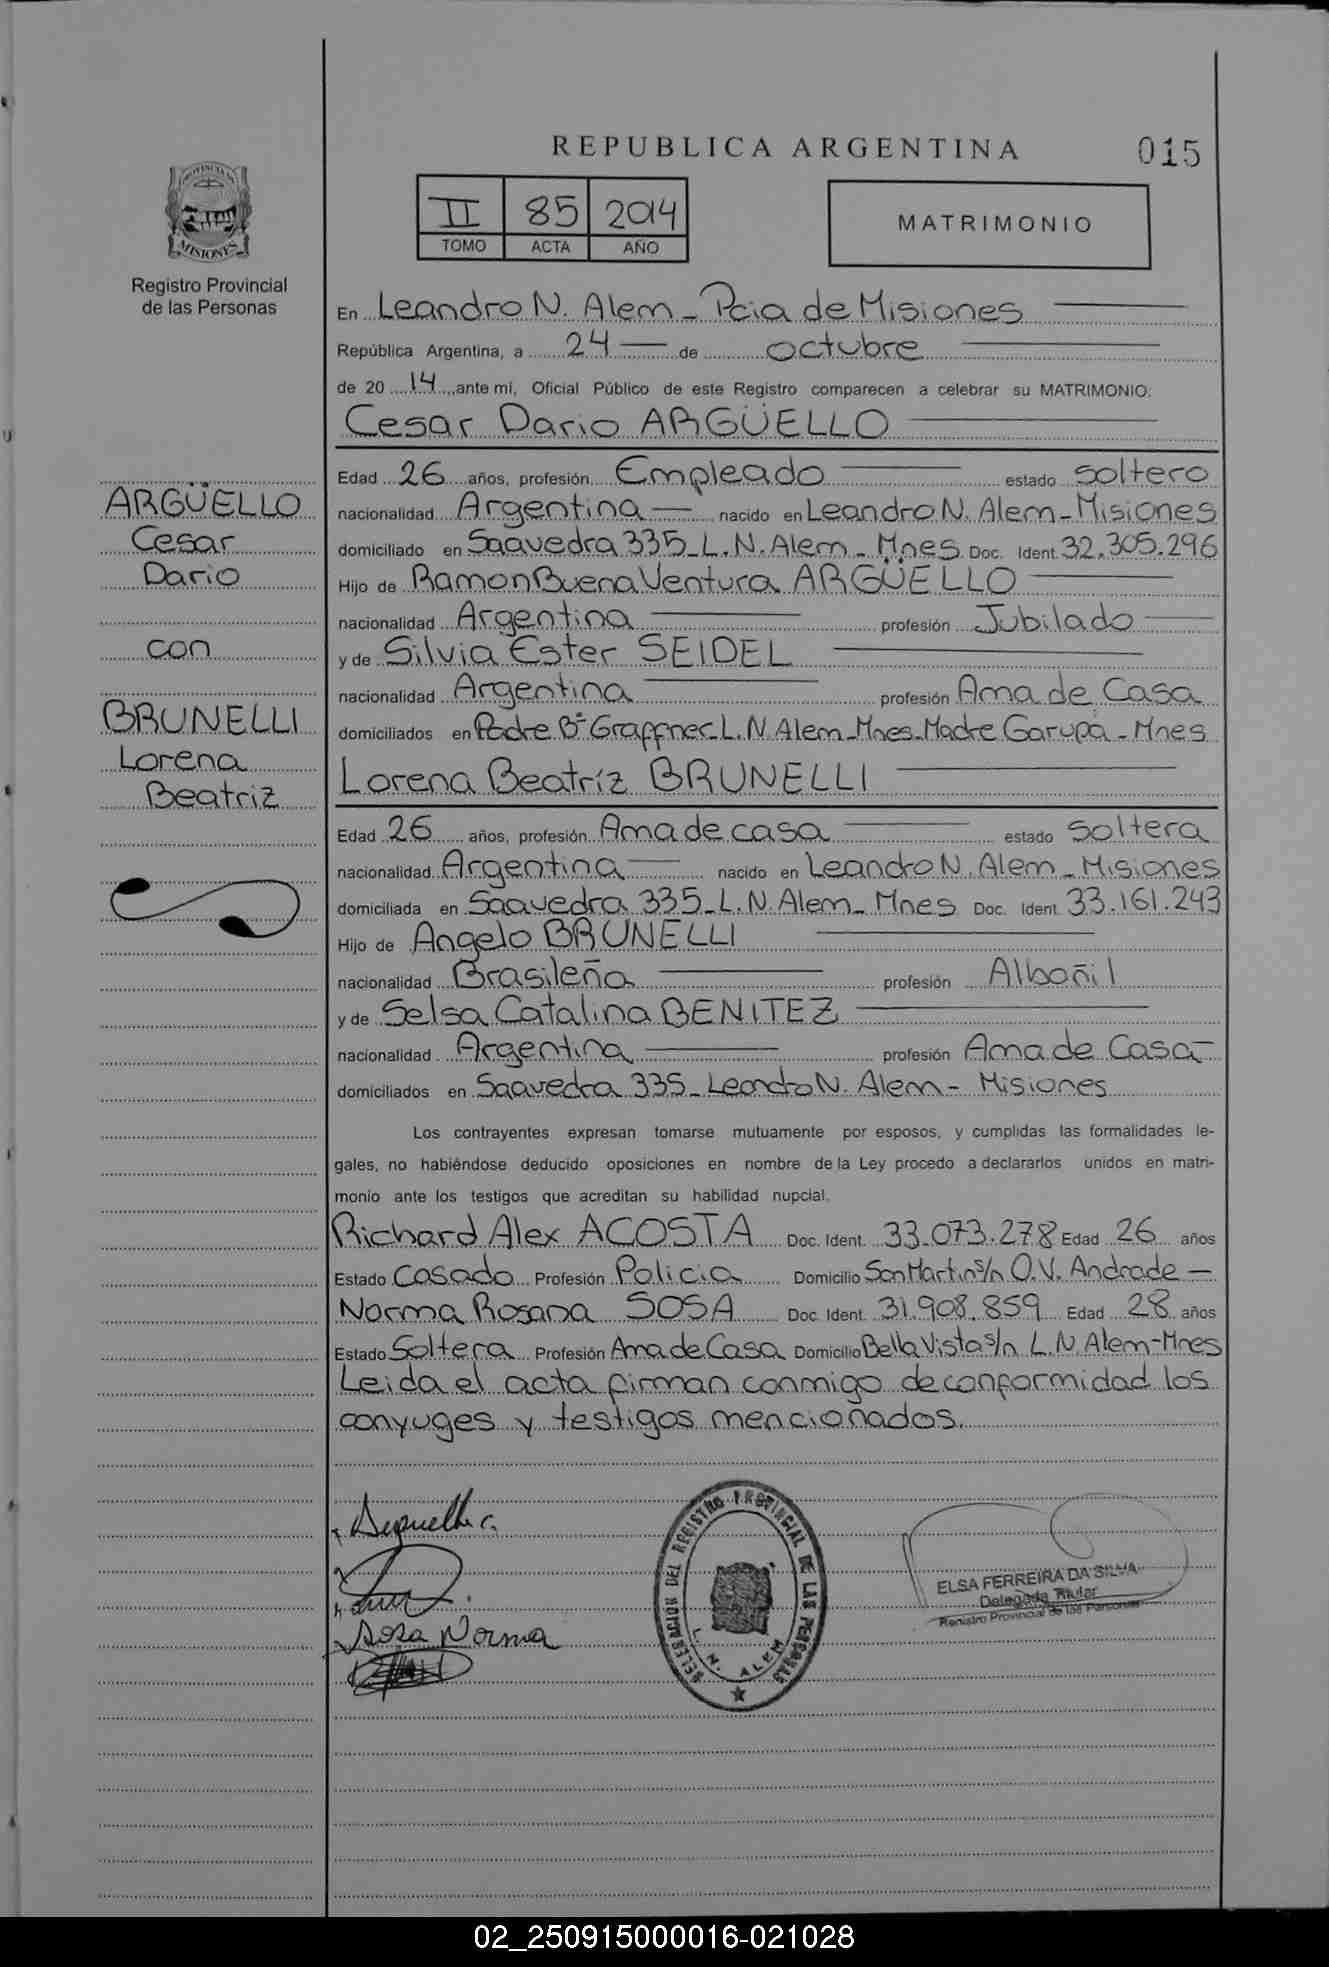 REPUBLICA ARGENTINA
015
II 85 2014
TOMO ACTA AÑO
MATRIMONIO
PROVINCIA DE
MISIONES
Registro Provincial
de las Personas
En Leandro N. Alem - Pcia de Misiones
República Argentina, a 24 de octubre
de 20 14 ante mí, Oficial Público de este Registro comparecen a celebrar su MATRIMONIO:
Cesar Dario ARGÜELLO
Edad 26 años, profesión Empleado estado soltero
nacionalidad Argentina nacido en Leandro N. Alem - Misiones
domiciliado en Saavedra 335 - L. N. Alem - Mnes Doc. Ident. 32.305.296
Hijo de Ramon Buena Ventura ARGÜELLO
nacionalidad Argentina profesión Jubilado
y de Silvia Ester SEIDEL
nacionalidad Argentina profesión Ama de Casa
domiciliados en Padre Bº Graffner - L. N Alem - Mnes - Madre Garupá - Mnes
Lorena Beatríz BRUNELLI
Edad 26 años, profesión Ama de casa estado soltera
nacionalidad Argentina nacido en Leandro N. Alem - Misiones
domiciliada en Saavedra 335 - L. N. Alem - Mnes Doc. Ident. 33.161.243
Hijo de Angelo BRUNELLI
nacionalidad Brasileña profesión Albañil
y de Selsa Catalina BENITEZ
nacionalidad Argentina profesión Ama de Casa
domiciliados en Saavedra 335 - Leandro N. Alem - Misiones
Los contrayentes expresan tomarse mutuamente por esposos, y cumplidas las formalidades le-
gales, no habiéndose deducido oposiciones en nombre de la Ley procedo a declararlos unidos en matri-
monio ante los testigos que acreditan su habilidad nupcial.
Richard Alex ACOSTA Doc. Ident. 33.073.278 Edad 26 años
Estado Casado Profesión Policia Domicilio San Martin s/n O.V. Andrade
Norma Rosana SOSA Doc. Ident. 31.908.859 Edad 28 años
Estado Soltera Profesión Ama de Casa Domicilio Bella Vista s/n L.N. Alem - Mnes
Leida el acta firman conmigo de conformidad los
conyuges y testigos mencionados.
ARGÜELLO
Cesar
Dario
con
BRUNELLI
Lorena
Beatriz
Arguello c.
Sosa Norma
DELEGACION DEL REGISTRO PROVINCIAL DE LAS PERSONAS
L. N. ALEM
ELSA FERREIRA DA SILVA
Delegada Titular
Registro Provincial de las Personas
02_250915000016-021028